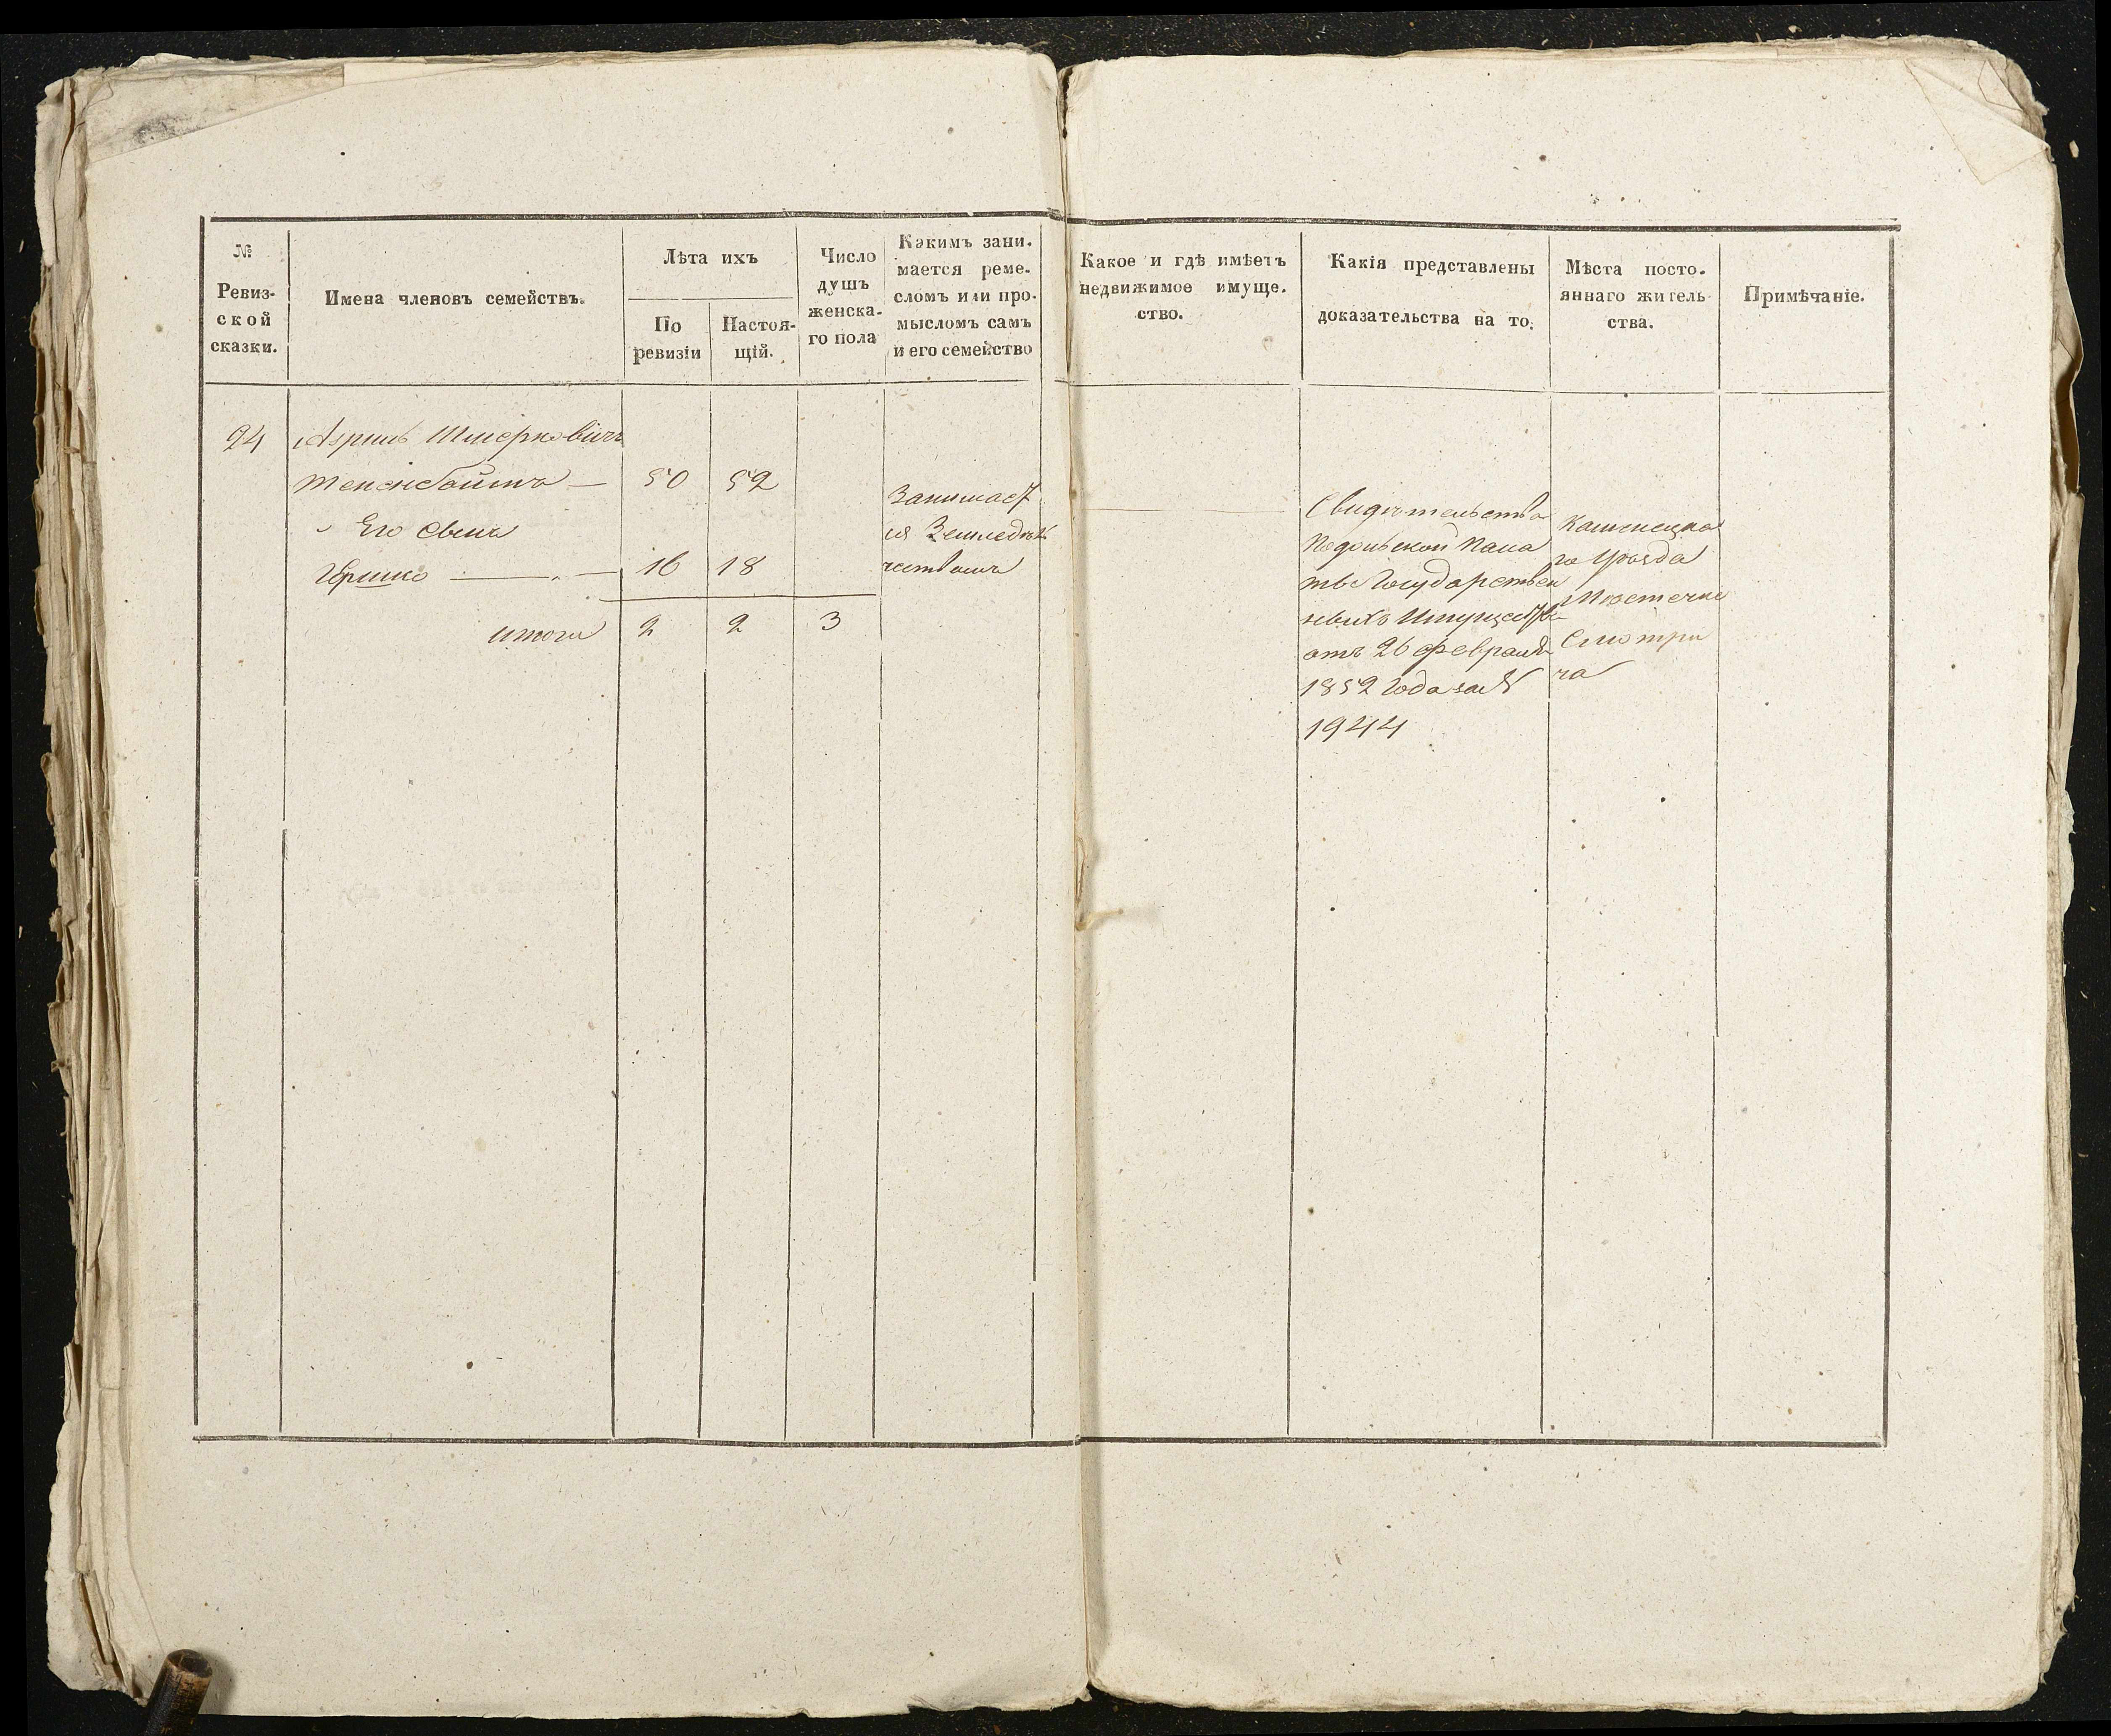 №
Ревиз-
ской
сказки.
Имена членовъ семействъ.
Лѣта ихъ
По
ревизіи
Настоя-
щій.
Число
душъ
женска-
го пола
Какимъ зани-
мается реме-
сломъ или про-
мысломъ самъ
и его семейство
Какое и гдѣ имѣетъ
недвижимое имуще-
ство.
Какія представлены
доказательства на то.
Мѣста посто-
яннаго житель-
ства.
Примѣчаніе.
24
Шмерковичъ
Тененбаумъ — 50 52
Его Сынъ
Гершко — 16 18
итого 2 2 3
Занимает
ся Земледѣль
чествомъ
Свидѣтельство
Подольской Пала
ты Государствен
ныхъ Имуществъ
отъ 26 февраля
1852 года за №
1944
Каменецка
го Уѣзда
Мѣстечко
Смотри
ча